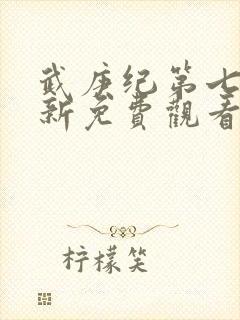 武庚纪第七
新免費觀看
柠檬笑